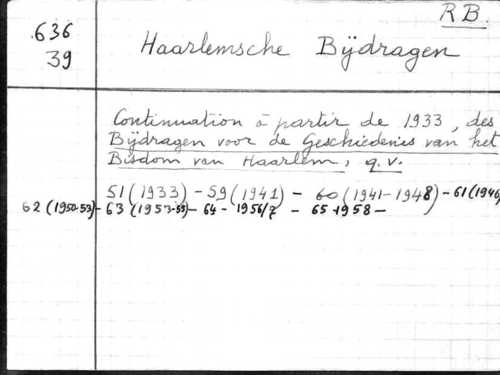 R B.
636
39
Haarlemsche Bijdragen
Continuation à partir de 1933, des
Bijdragen voor de Geschiedenis van het
Bisdom van Haarlem, q.v.
51 (1933) - 59 (1941) - 60 (1941-1948) - 61 (1946
62 (1950-53) - 63 (1953-55) - 64 - 1956/7 - 65 - 1958 -